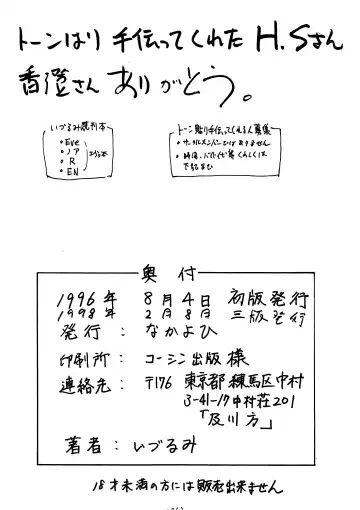 トーンはり手伝ってくれたH.Sさん
香澄さんありがとう。
いづるみ既刊本
・Eve
・ノア
・R
・EN
トーン貼り手伝ってくれる人募集
下記まで
奥付
1996年 8月4日 初版発行
1998年 2月8日 三版発行
発行：なかよひ
印刷所：コーシン出版様
連絡先：〒176 東京都練馬区中村
3-41-17中村荘201
「及川方」
著者：いづるみ
18才未満の方には販売出来ません